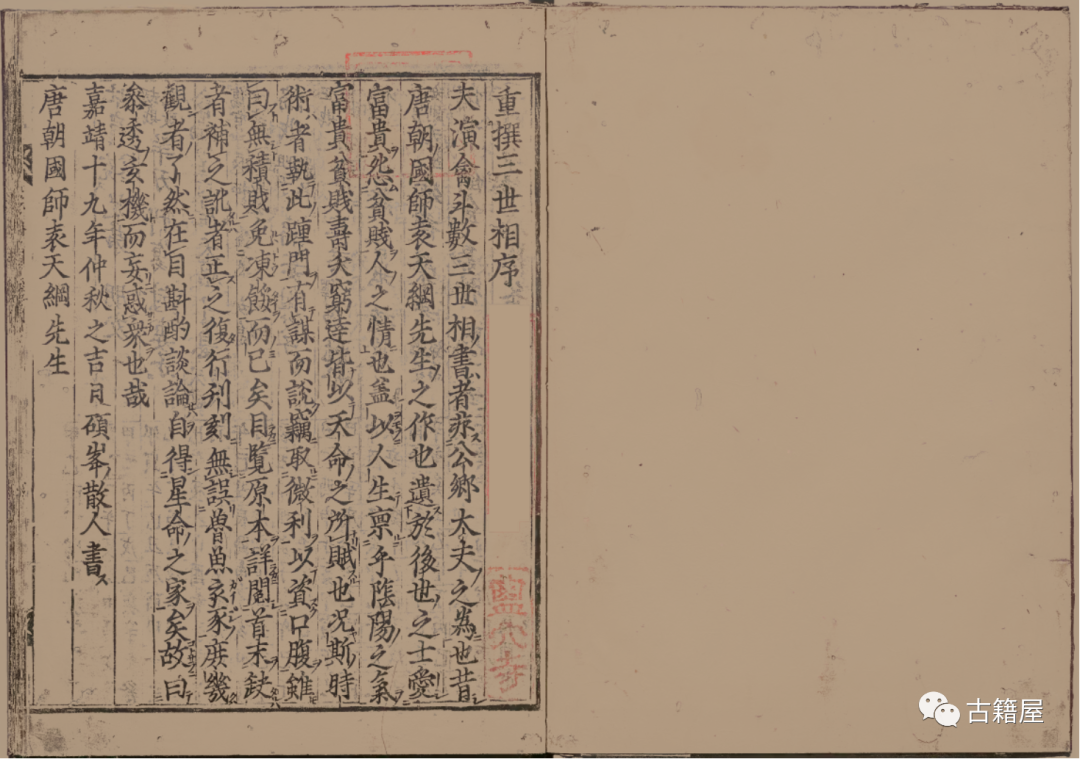 重撰三世相序
夫演禽斗數三世相書者非公卿大夫之為也昔
唐朝國師袁天綱先生之作也遺於後世之士愛
富貴怨貧賤人之情也蓋以人生禀乎陰陽之氣
富貴貧賤壽夭窮達皆以天命之所賦也况斯時
術者執此踵門有謀而說竊取微利以資口腹雖
曰無積財免凍餒而已矣目覽原本詳閱首末缺
者補之訛者正之復行刊刻無誤魯魚亥豕庶幾
觀者了然在目斟酌談論自得星命之家矣故曰
參透玄機而妄惑衆也哉
嘉靖十九年仲秋之吉日碩峯散人書
唐朝國師袁天綱先生
古籍屋